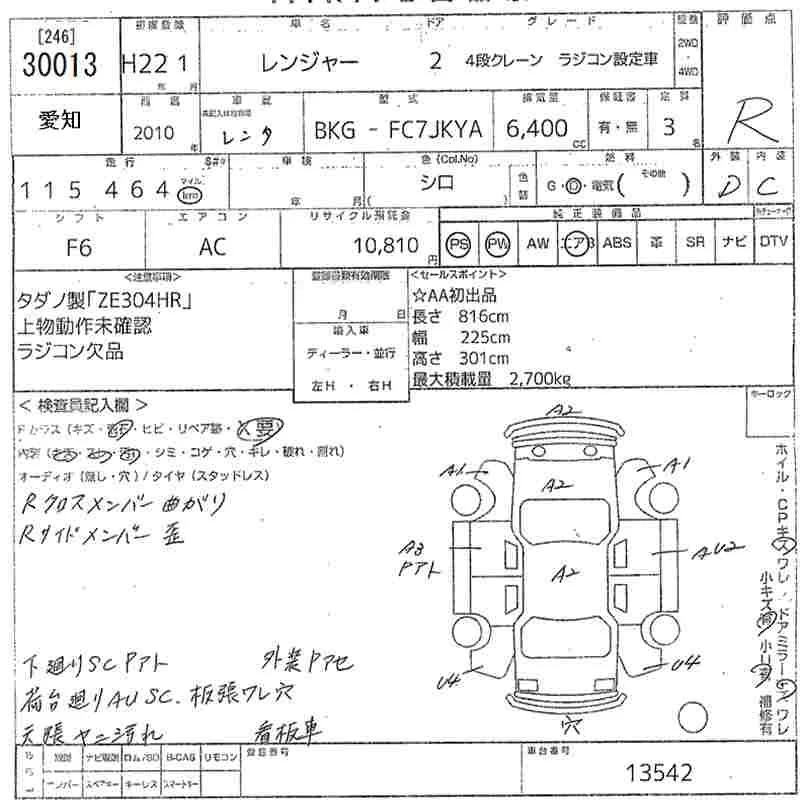 [246]
30013
H22 1
年 月
車名
レンジャー
ドア
2
グレード
4段クレーン ラジコン設定車
2WD
・
4WD
評価点
R
愛知
2010
年
車歴
レンタ
型式
BKG - FC7JKYA
排気量
6,400
CC
保証書
有・無
定員
3
名
走行
115464
マイル
km
車検
年 月(
色(Col.No)
シロ
)
色替
燃料
G・D・電気( その他 )
外装
D
内装
C
シフト
F6
エアコン
AC
リサイクル預託金
10,810
円
純正装備品
PS PW AW エアB ABS 革 SR ナビ DTV
<注意事項>
タダノ製「ZE304HR」
上物動作未確認
ラジコン欠品
登録書類有効期限
月 日
輸入車
ディーラー・並行
左H ・ 右H
<セールスポイント>
☆AA初出品
長さ 816cm
幅 225cm
高さ 301cm
最大積載量 2,700kg
キーロック
< 検査員記入欄 >
・ヒビ・リペア跡・
・シミ・コゲ・穴・キレ・破れ・割れ)
オーディオ(無し・穴)/タイヤ(スタッドレス)
Rクロスメンバー 曲がり
Rサイドメンバー 歪
A2
A1
A1
A2
A3
Pアト
AU2
A2
U4
U4
穴
ホイル・CPキズワレ/ドアミラーキズワレ
下廻りSC Pアト 外装Pアセ
荷台廻りAU SC. 板張ワレ穴
天張ヤニ汚れ 看板車
ナビ取説 ロム/SD B-CAS リモコン
スペアキー キーレス スマートキー
登録番号
車台番号
13542